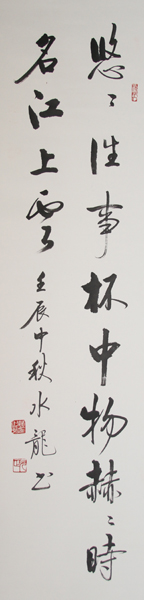 悠〻往事杯中物赫〻時
名江上雲
壬辰中秋水龍书